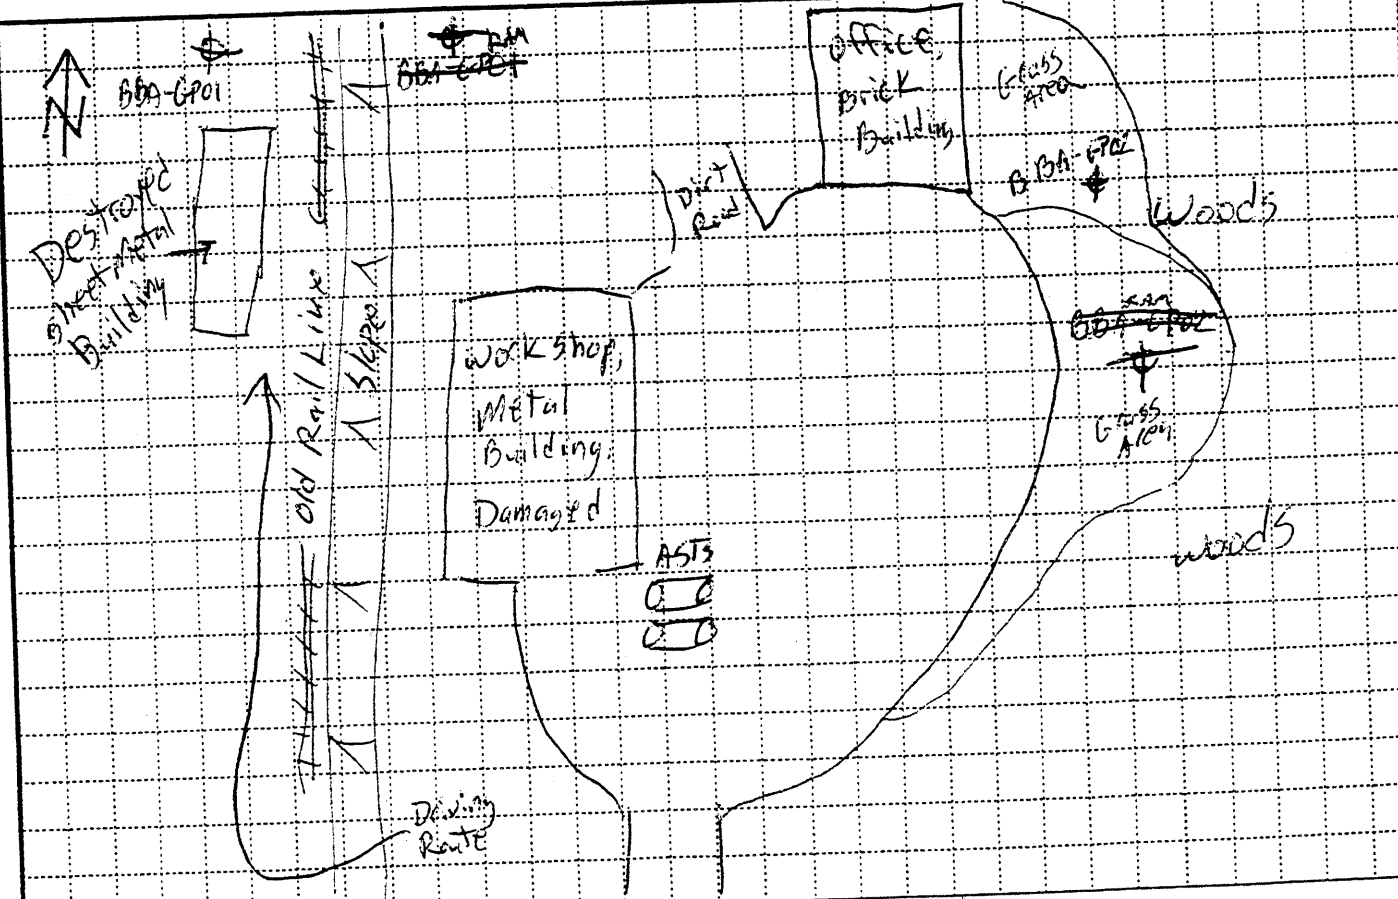 N
BBA-GP01
RAM
BBA-GP01
Office,
Brick
Building
Grass
Area
BBA-GP02
Woods
Dirt
Road
Destroyed
Sheet Metal
Building
Old Rail Line
Slope
Workshop,
Metal
Building,
Damaged
RAM
BBA-GP02
Grass
Area
ASTs
Woods
Driving
Route